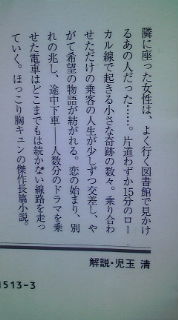 隣に座った女性は、よく行く図書館で見かけ
るあの人だった……。片道わずか15分のロー
カル線で起きる小さな奇跡の数々。乗り合わ
せただけの乗客の人生が少しずつ交差し、や
がて希望の物語が紡がれる。恋の始まり、別
れの兆し、途中下車――人数分のドラマを乗
せた電車はどこまでも続かない線路を走っ
ていく。ほっこり胸キュンの傑作長篇小説。
解説・児玉 清
1513-3